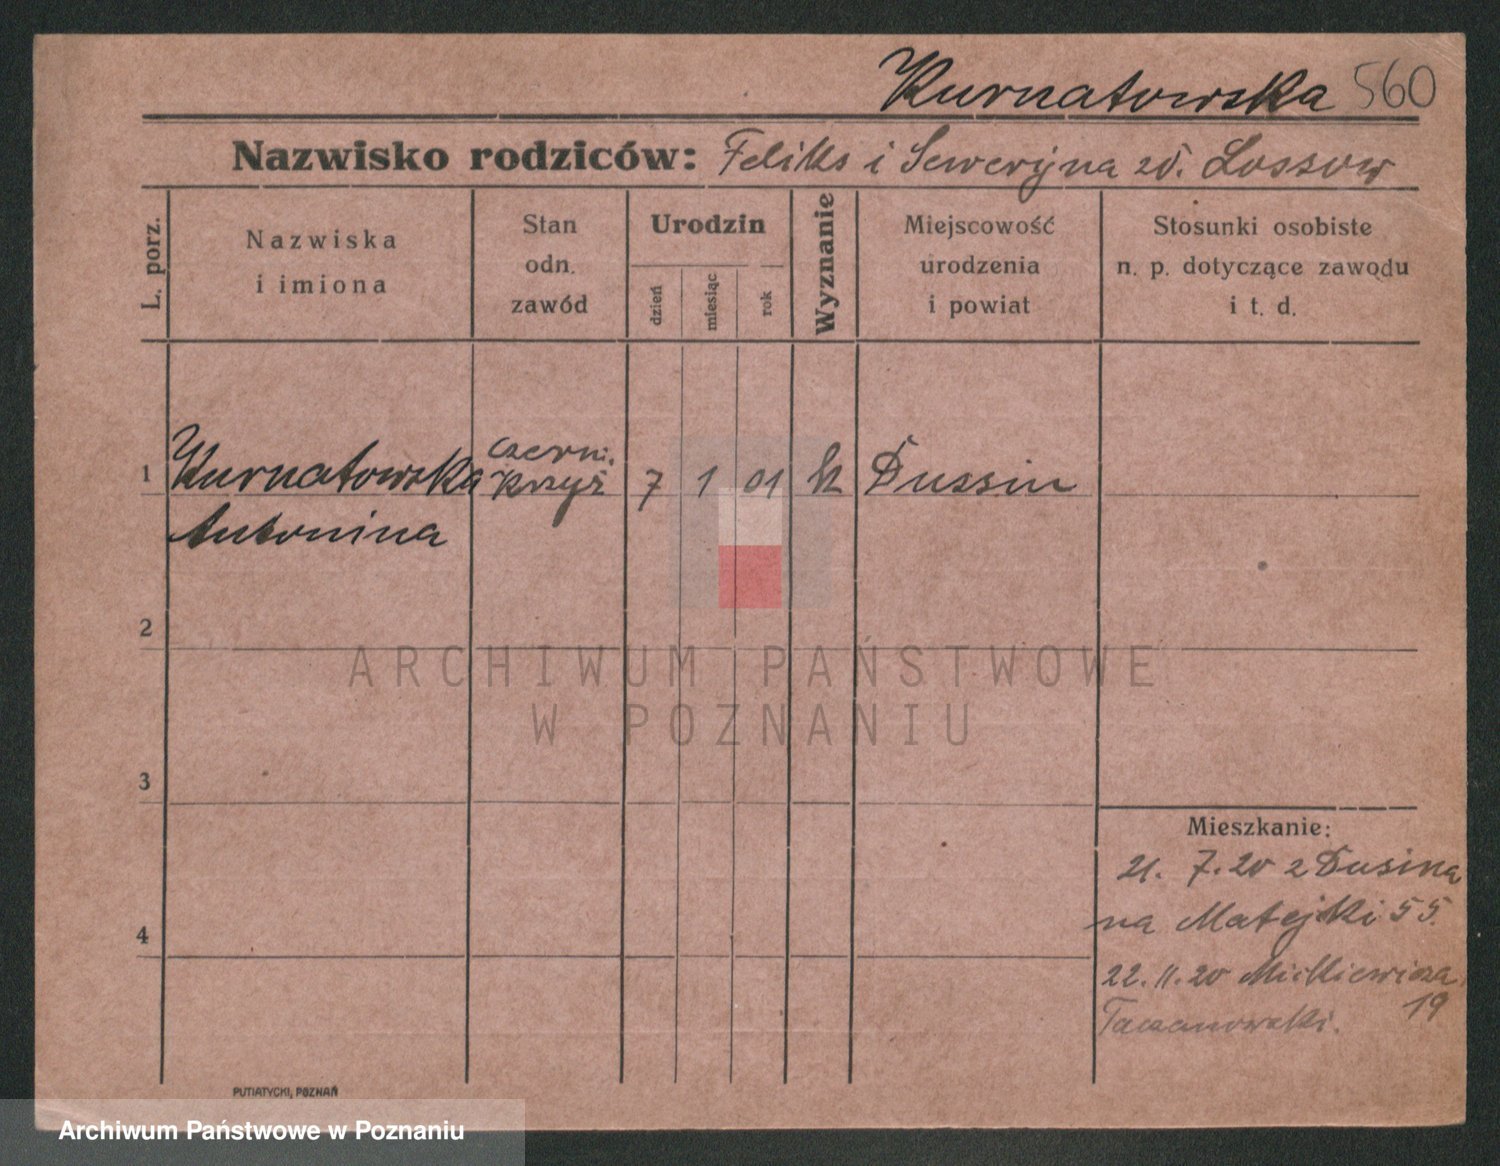 Kurnatowska 560
Nazwisko rodziców: Feliks i Seweryna zd. Lossow
L. porz.
Nazwiska
i imiona
Stan
odn.
zawód
Urodzin
dzień
miesiąc
rok
Wyznanie
Miejscowość
urodzenia
i powiat
Stosunki osobiste
n. p. dotyczące zawodu
i t. d.
1 Kurnatowska czerw. krzyż 7 1 01 k Dussin
Antonina
2
ARCHIWUM PAŃSTWOWE
W POZNANIU
3
Mieszkanie:
21. 7. 20 z Dusina
na Matejki 55.
4
22. 11. 20 Mickiewicza 19
Taczanowski.
PUTIATYCKI, POZNAŃ
Archiwum Państwowe w Poznaniu